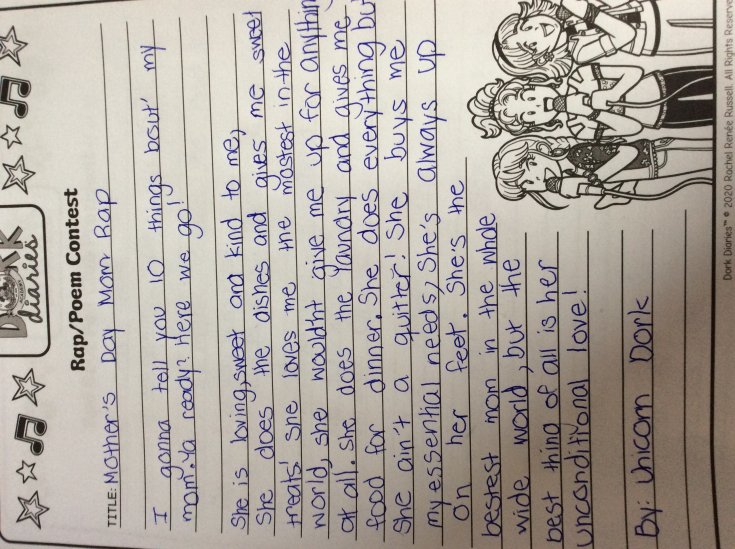 DORK
diaries
Rap/Poem Contest
TITLE: Mother's Day Mom Rap
I gonna tell you 10 things bout' my
mom. Ya ready? Here we go!
She is loving, sweet and kind to me,
She does the dishes and gives me sweet
treats! She loves me the mostest in the
world, she wouldn't give me up for anything
at all. She does the laundry and gives me
food for dinner. She does everything but
She ain't a quitter! She buys me
my essential needs, She's always up
on her feet. She's the
bestest mom in the whole
wide world, but the
best thing of all is her
unconditional love!
By: Unicorn Dork
Dork Diaries™ © 2020 Rachel Renée Russell. All Rights Reserve